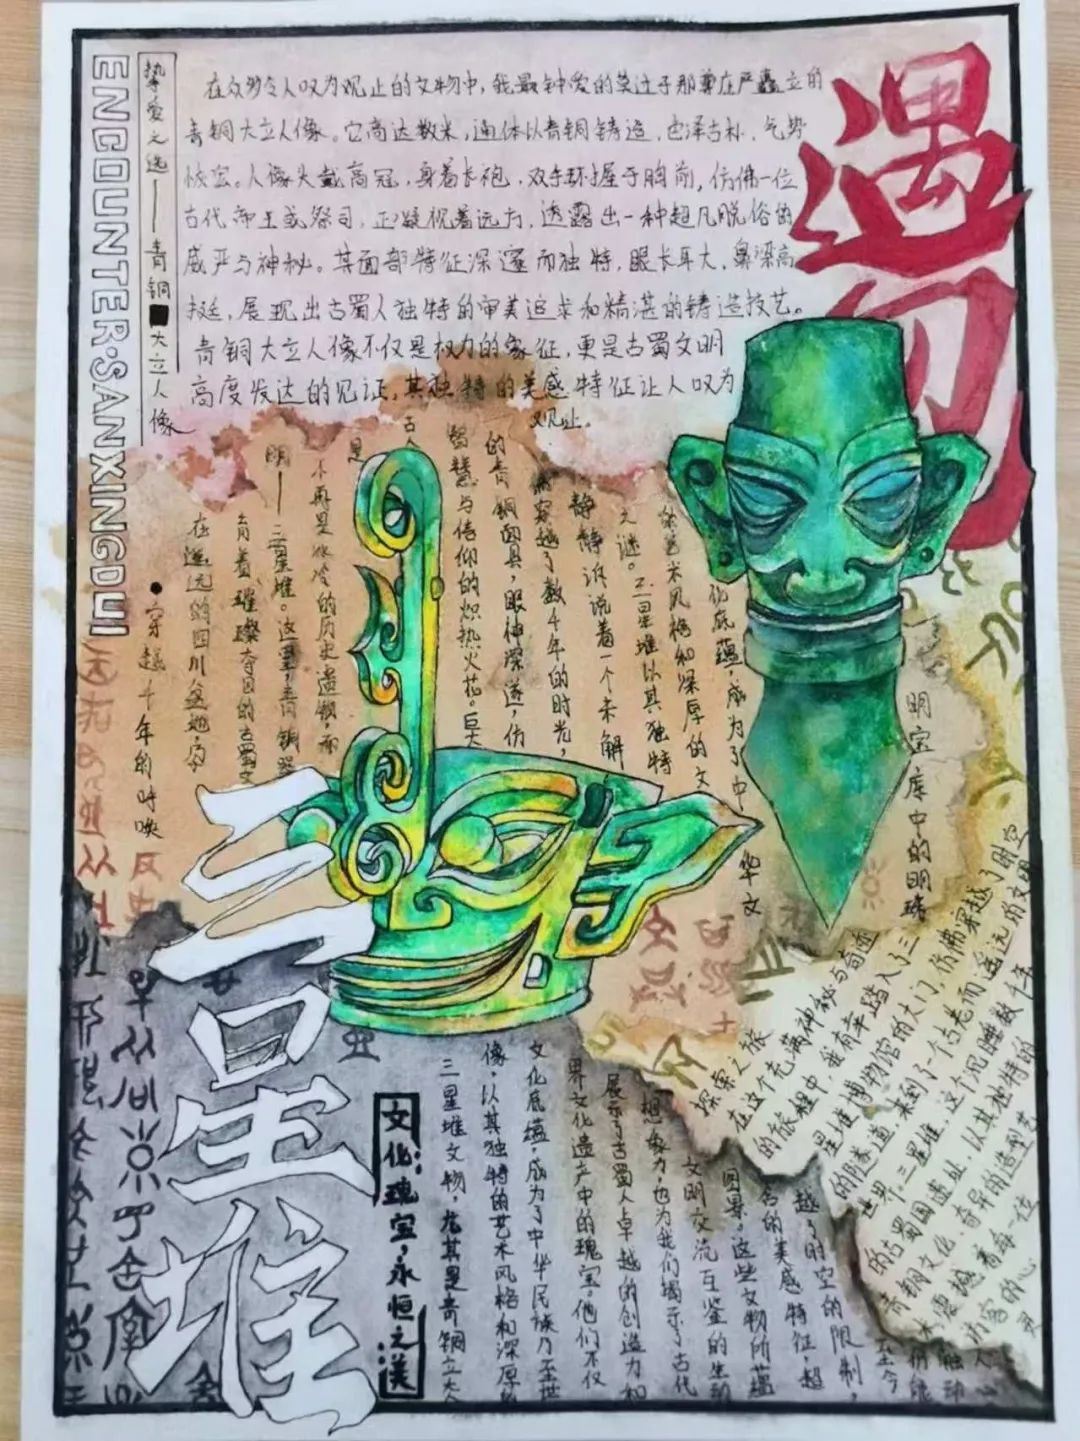 遇见
三星堆
ENCOUNTER·SANXINGDUI
挚爱之选——青铜大立人像
在众多令人叹为观止的文物中，我最钟爱的莫过于那尊庄严矗立的
青铜大立人像。它高达数米，通体以青铜铸造，色泽古朴，气势
恢宏。人像头戴高冠，身着长袍，双手环握于胸前，仿佛一位
古代帝王或祭司，正凝视着远方，透露出一种超凡脱俗的
威严与神秘。其面部特征深邃而独特，眼长耳大，鼻梁高
挺，展现出古蜀人独特的审美追求和精湛的铸造技艺。
青铜大立人像不仅是权力的象征，更是古蜀文明
高度发达的见证，其独特的美感特征让人叹为
观止。
●穿越千年的呼唤
在遥远的四川盆地，孕
育着璀璨夺目的古蜀文
明——三星堆。这里，青铜器
不再是冰冷的历史遗物，而
是
古
智慧与信仰的炽热火花。巨大
的青铜面具，眼神深邃，仿
佛穿越了数千年的时光，
静静诉说着一个未解
之谜。三星堆以其独特
的艺术风格和深厚的文
化底蕴，成为了中华文
明宝库中的明珠
探索之旅
在这个充满神秘与奇迹
的旅程中，我有幸踏入了三
星堆博物馆的大门，仿佛穿越了时空
的隧道，来到了一个古老而遥远的文明
世界。三星堆，这个沉睡数千年
的古蜀国遗址，以其独特的
青铜文化、奇异的造型艺
术震撼着每一位
访客的心灵
文化瑰宝，永恒之美
三星堆文物，尤其是青铜立人
像，以其独特的艺术风格和深厚的
文化底蕴，成为了中华民族乃至世
界文化遗产中的瑰宝。他们不仅
展示了古蜀人卓越的创造力和
想象力，也为我们揭示了古代
文明交流互鉴的生动
图景。这些文物所蕴
含的美感特征，超
越了时空的限制，
至今